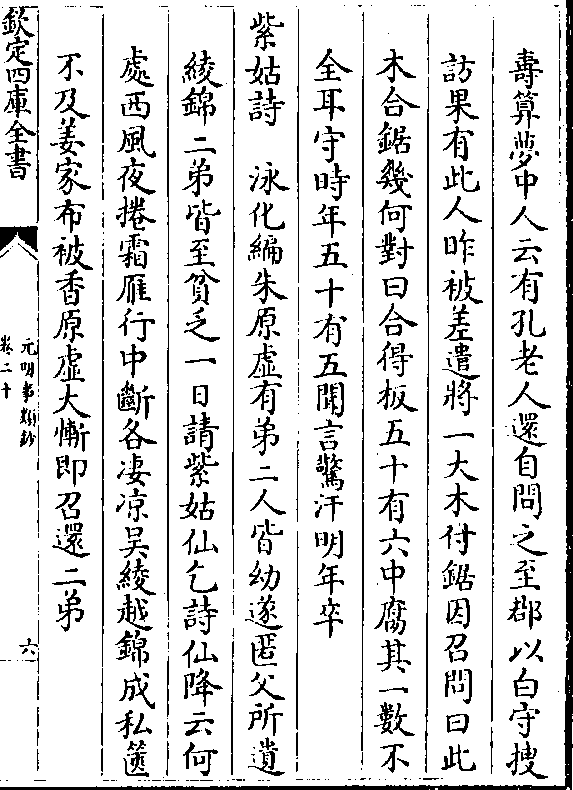 壽算夢中人云有孔老人還自問之至郡以白守搜
訪果有此人昨被差遣將一大木付鋸因召問曰此
木合鋸幾何對曰合得板五十有六中腐其一數不
全耳守時年五十有五聞言驚汗明年卒
紫姑詩　泳化編朱原虛有弟二人皆幼遂匿父所遺
綾錦二弟皆至貧乏一日請紫姑仙乞詩仙降云何
處西風夜捲霜雁行中斷各凄凉吴綾越錦成私篋
不及姜家布被香原虛大慚即召還二弟
欽定四庫全書
元明事類鈔
卷二十
六